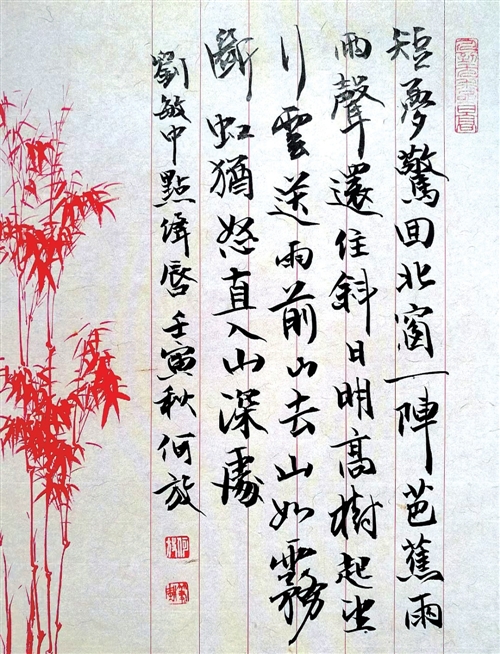 短夢驚回北窗一陣芭蕉雨
雨聲還住斜日明高樹起望
行雲送雨前山去山如霧
斷虹猶怒直入山深處
劉敏中點絳唇壬寅秋何放